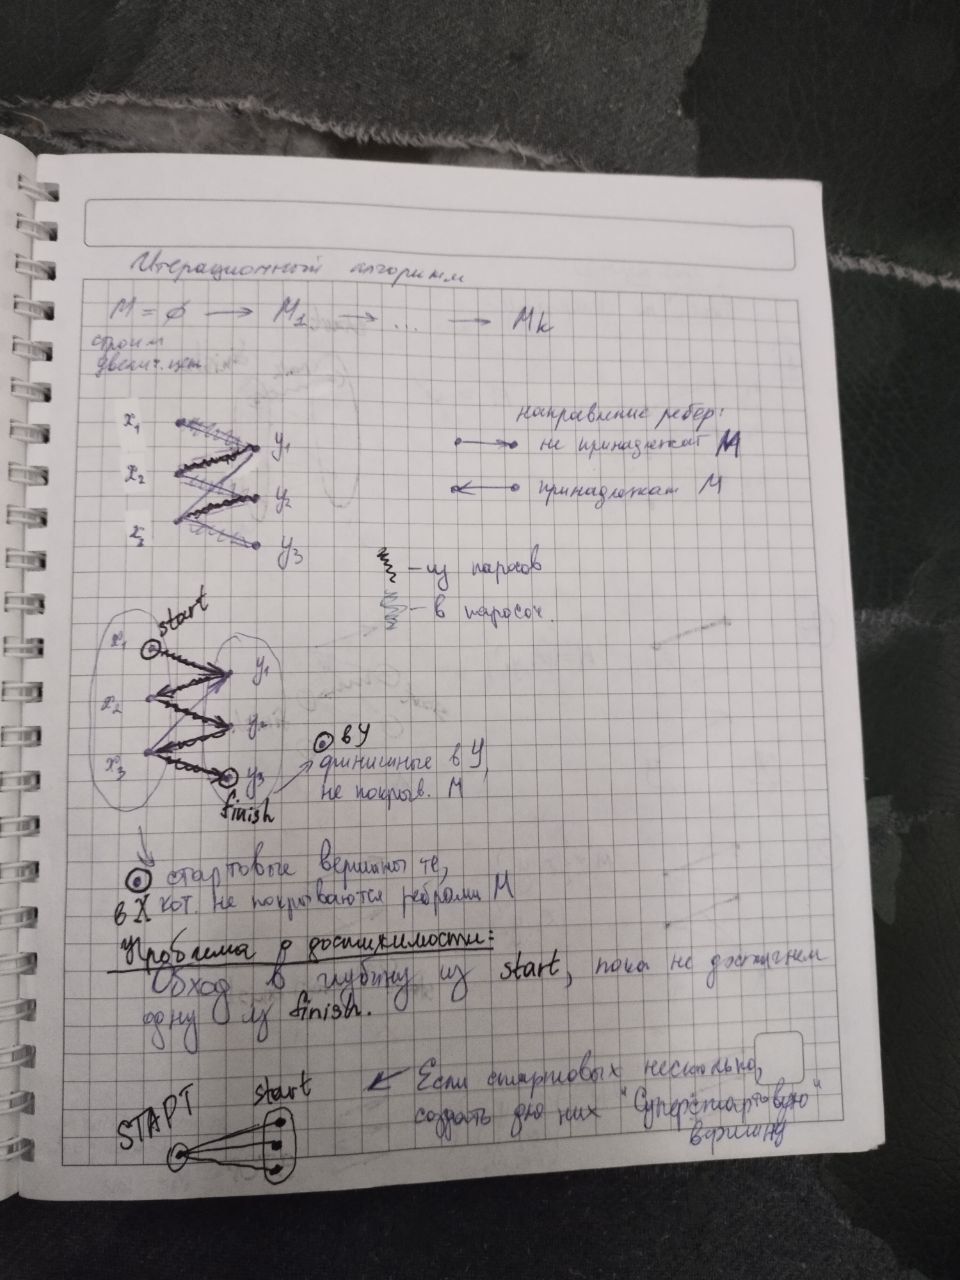 Итерационный алгоритм
M = ∅ → M₁ → ... → Mk
строим
увелич. цеп
направление ребер:
x₁
y₁
не принадлежат M
x₂
y₂
принадлежат M
x₃
y₃
- из паросоч
- в паросоч.
start
x₁
y₁
x₂
y₂
в У
x₃
y₃
финишные в У,
не покрыв. M
finish
стартовые вершины те,
в X кот. не покрываются ребрами M
Проблема о достижимости:
Обход в глубину из start, пока не достигнем
одну из finish.
START
start
Если стартовых несколько,
создать для них "Суперстартовую"
вершину